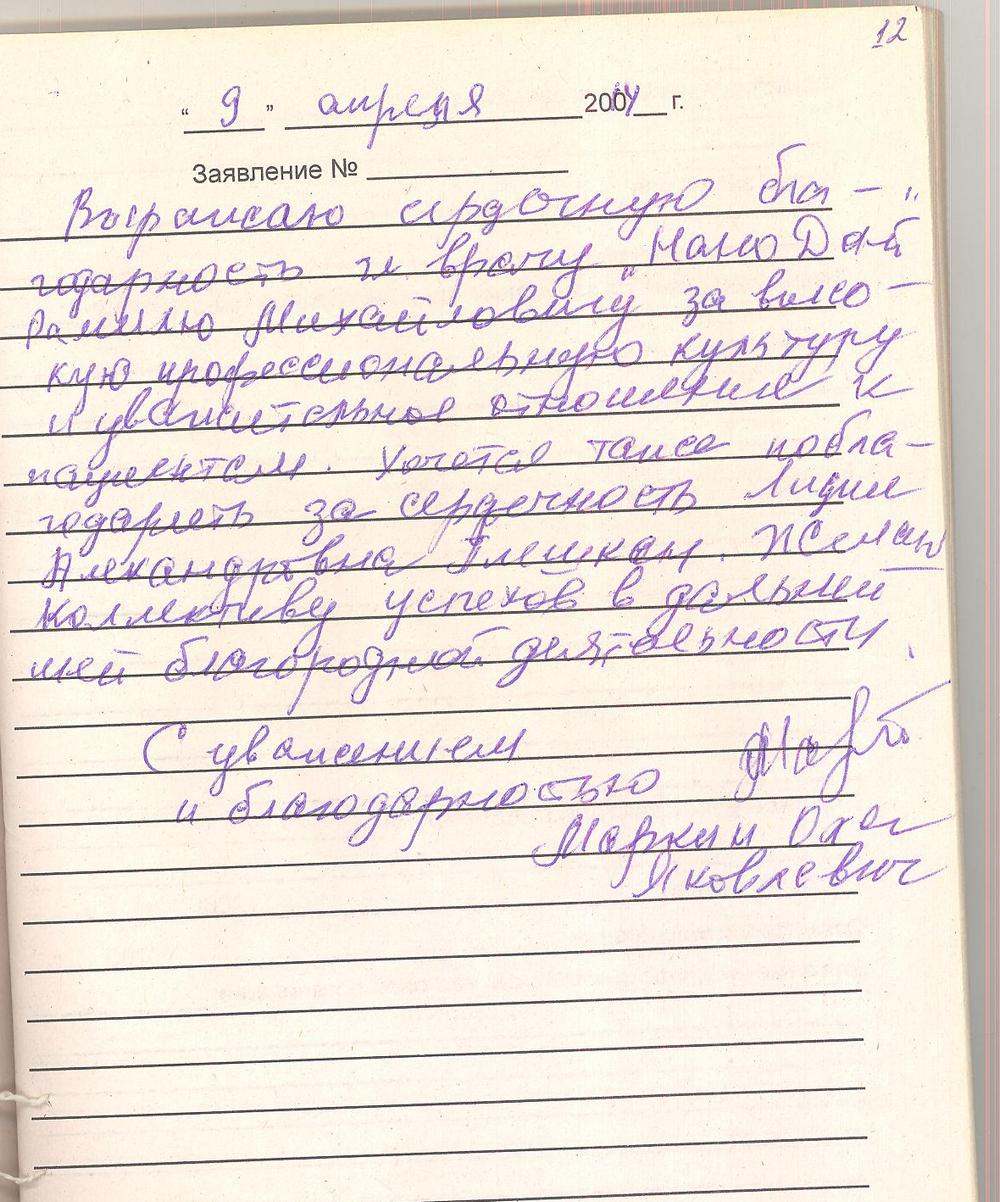 12
" 9 " апреля 2014 г.
Заявление №
Выражаю сердечную бла-
годарность гл врачу „Нано Дент"
Рамилю Михайловичу за высо-
кую профессиональную культуру
и уважительное отношение к
пациентам. Хочется также побла-
годарить за сердечность Лидии
Александровна. Желаю
Коллективу успехов в дальней
шей благородной деятельности.
С уважением
и благодарностью
Маркин Олег
Яковлевич